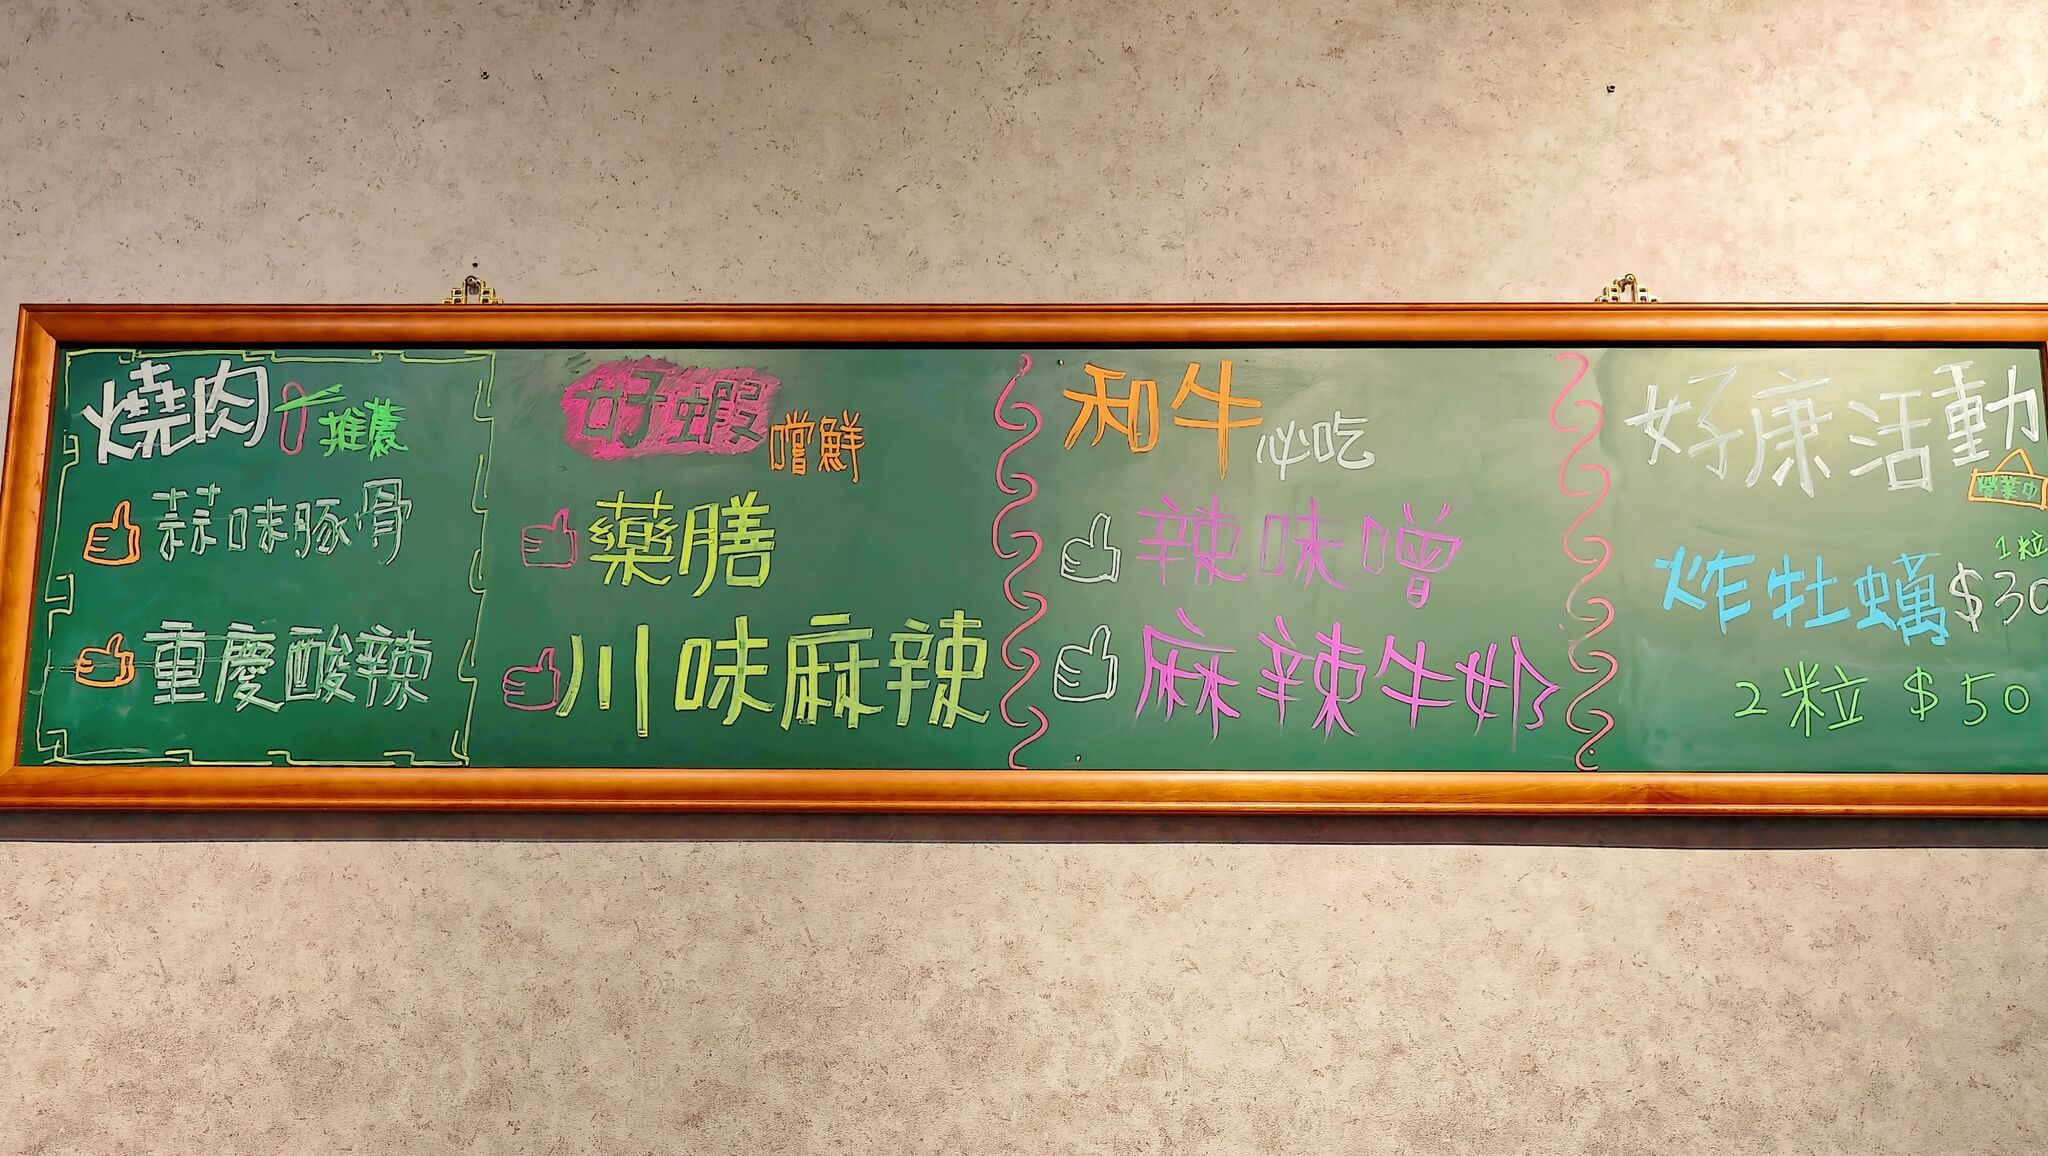 燒肉 推薦
蒜味豚骨
重慶酸辣
好蝦 嚐鮮
藥膳
川味麻辣
和牛 必吃
辣味噌
麻辣牛奶
好康活動
營業中
1粒
炸牡蠣$30
2粒 $50